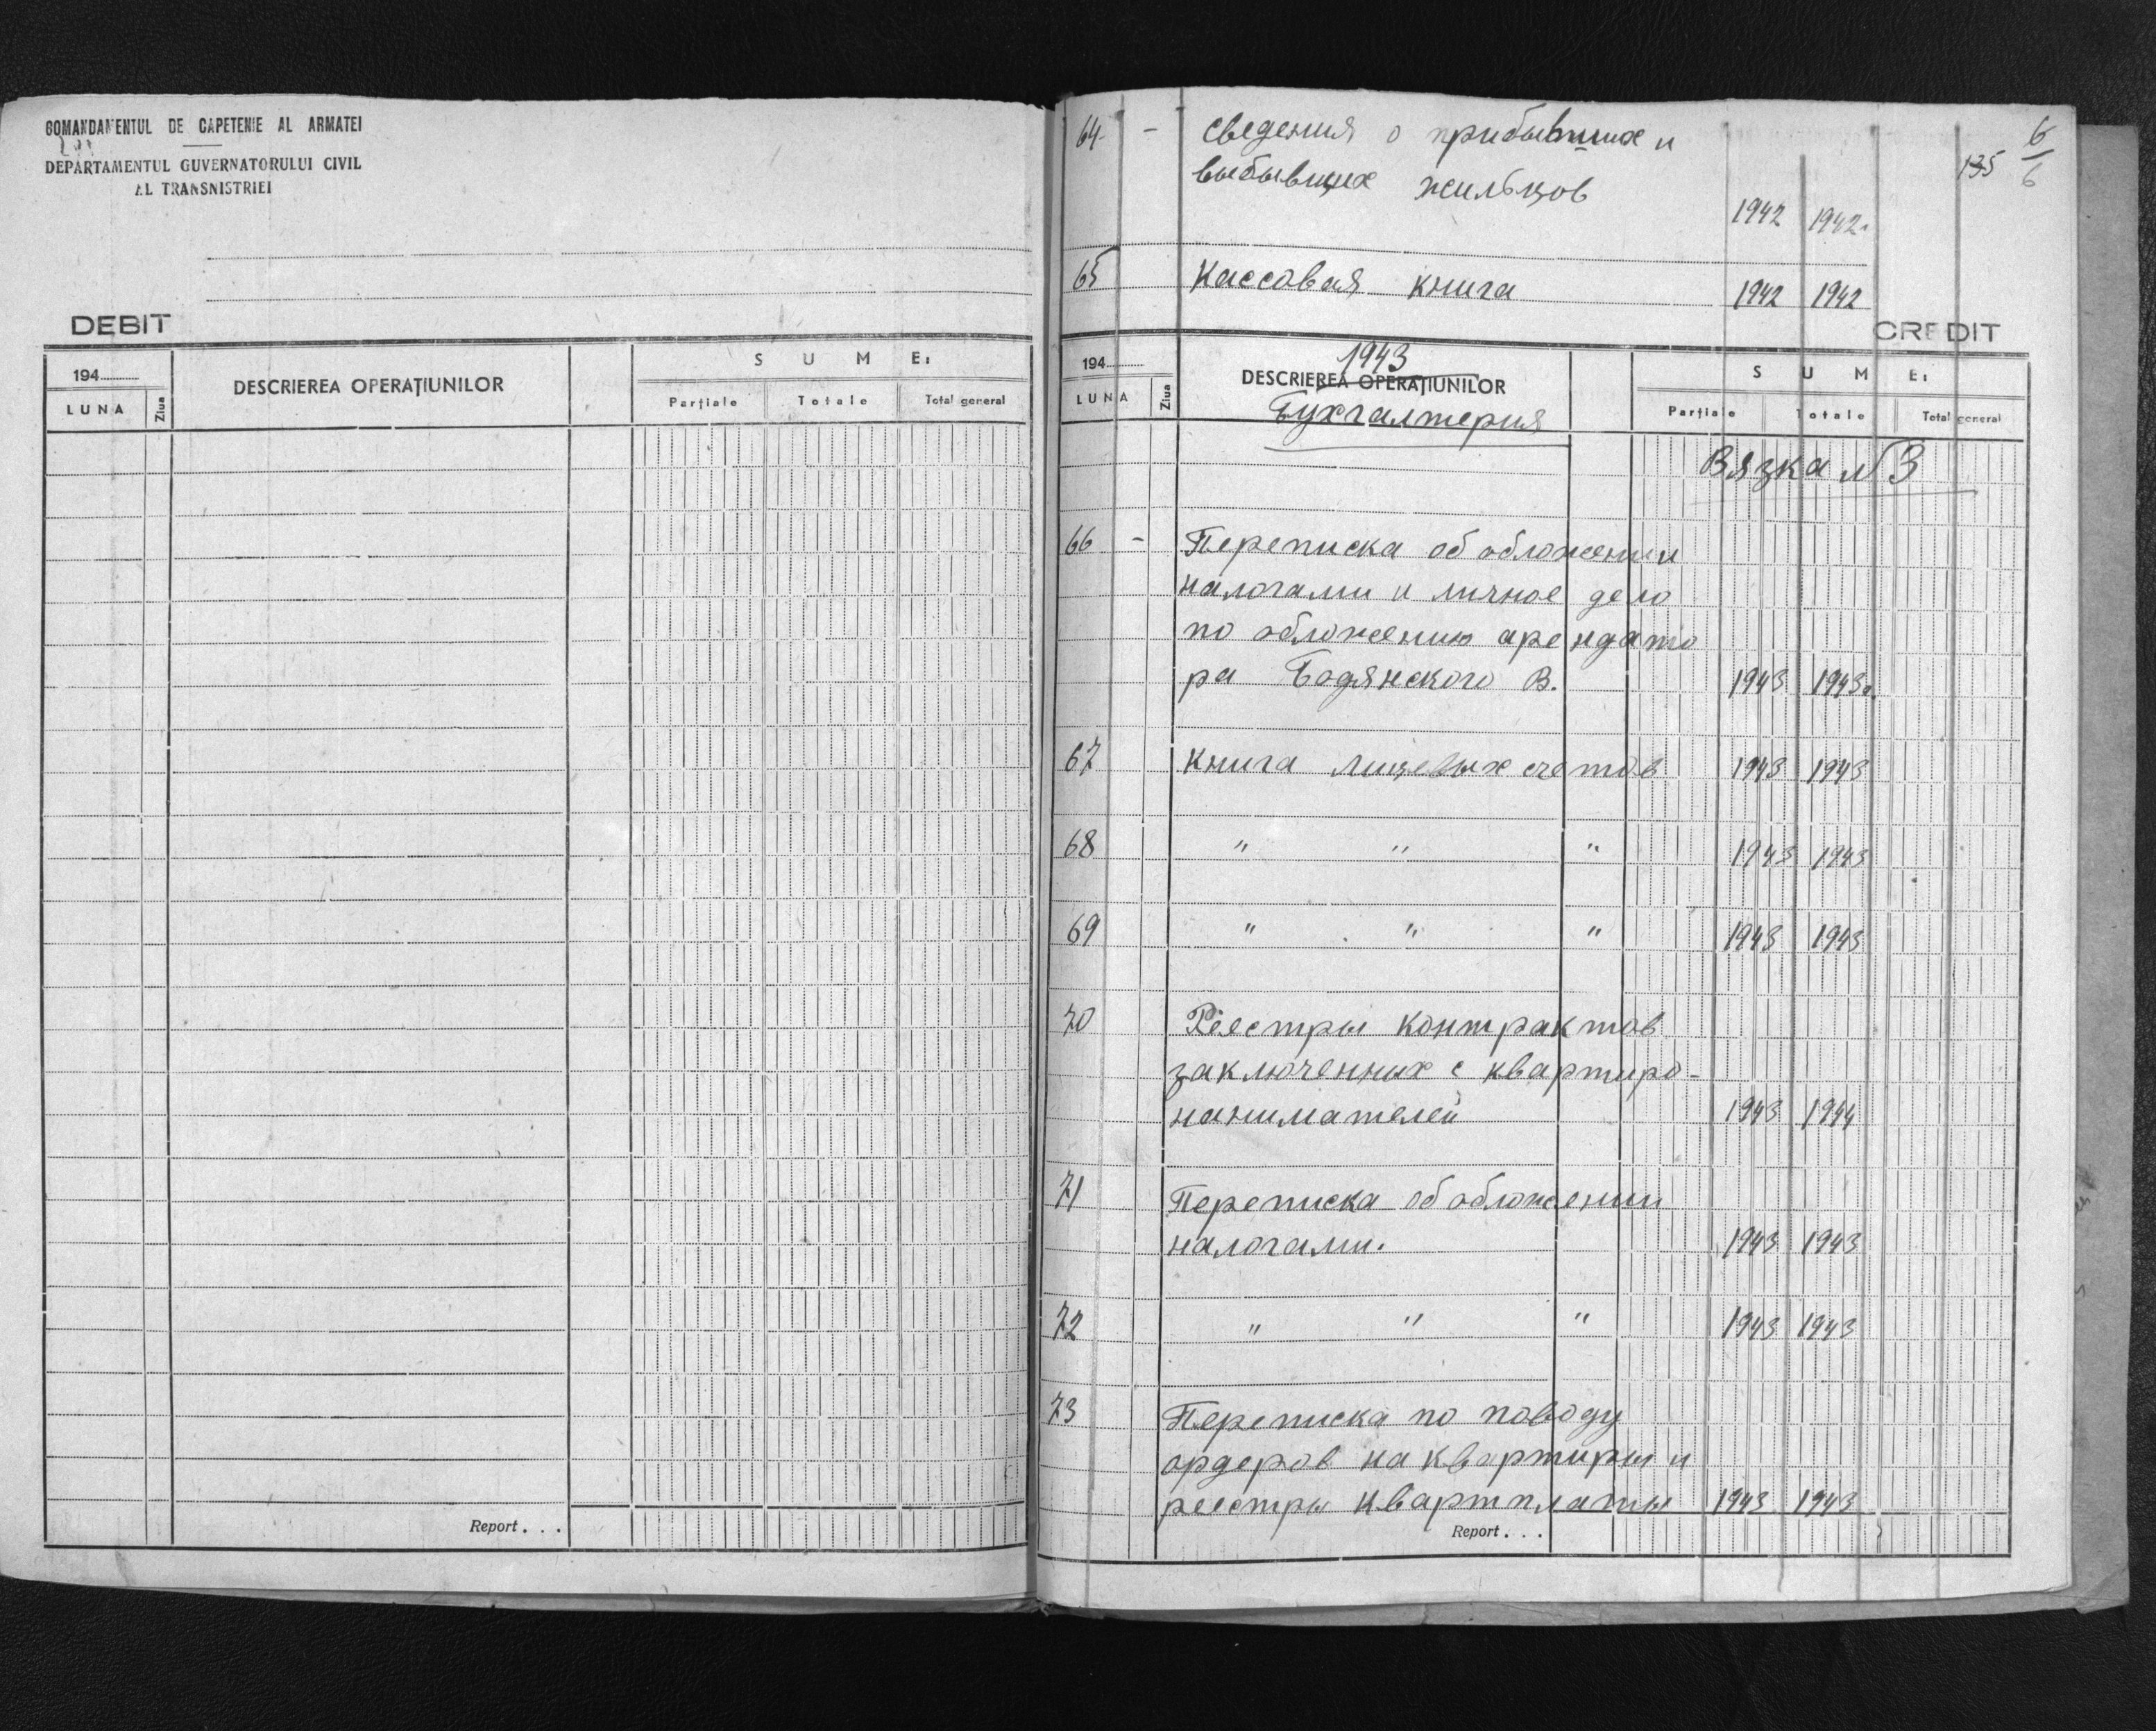 COMANDAMENTUL DE CAPETENIE AL ARMATEI
DEPARTAMENTUL GUVERNATORULUI CIVIL
AL TRANSNISTRIEI
DEBIT
194
LUNA
Ziua
DESCRIEREA OPERAȚIUNILOR
SUME:
Parțiale Totale Total general
Report . . .
6
135 6
64 - Сведения о прибывших и
выбывших жильцов
1942 1942.
65 Кассовая книга 1942 1942
CREDIT
194
LUNA
Ziua
1943
DESCRIEREA OPERAȚIUNILOR
Бухгалтерия
SUME:
Parțiale Totale Total general
Вязка N 3
66 - Переписка об обложении
налогами и личное дело
по обложению арендато
ра Бодянского В. 1943 1943.
67 Книга лицевых счетов 1943 1943
68 " " " 1943 1943
69 " " " 1943 1943
70 Реестры контрактов
заключенных с квартиро-
нанимателей 1943 1944
71 Переписка об обложении
налогами. 1943 1943
72 " " " 1943 1943
73 Переписка по поводу
ордеров на квартиры и
реестры квартплаты 1943 1943
Report . . .